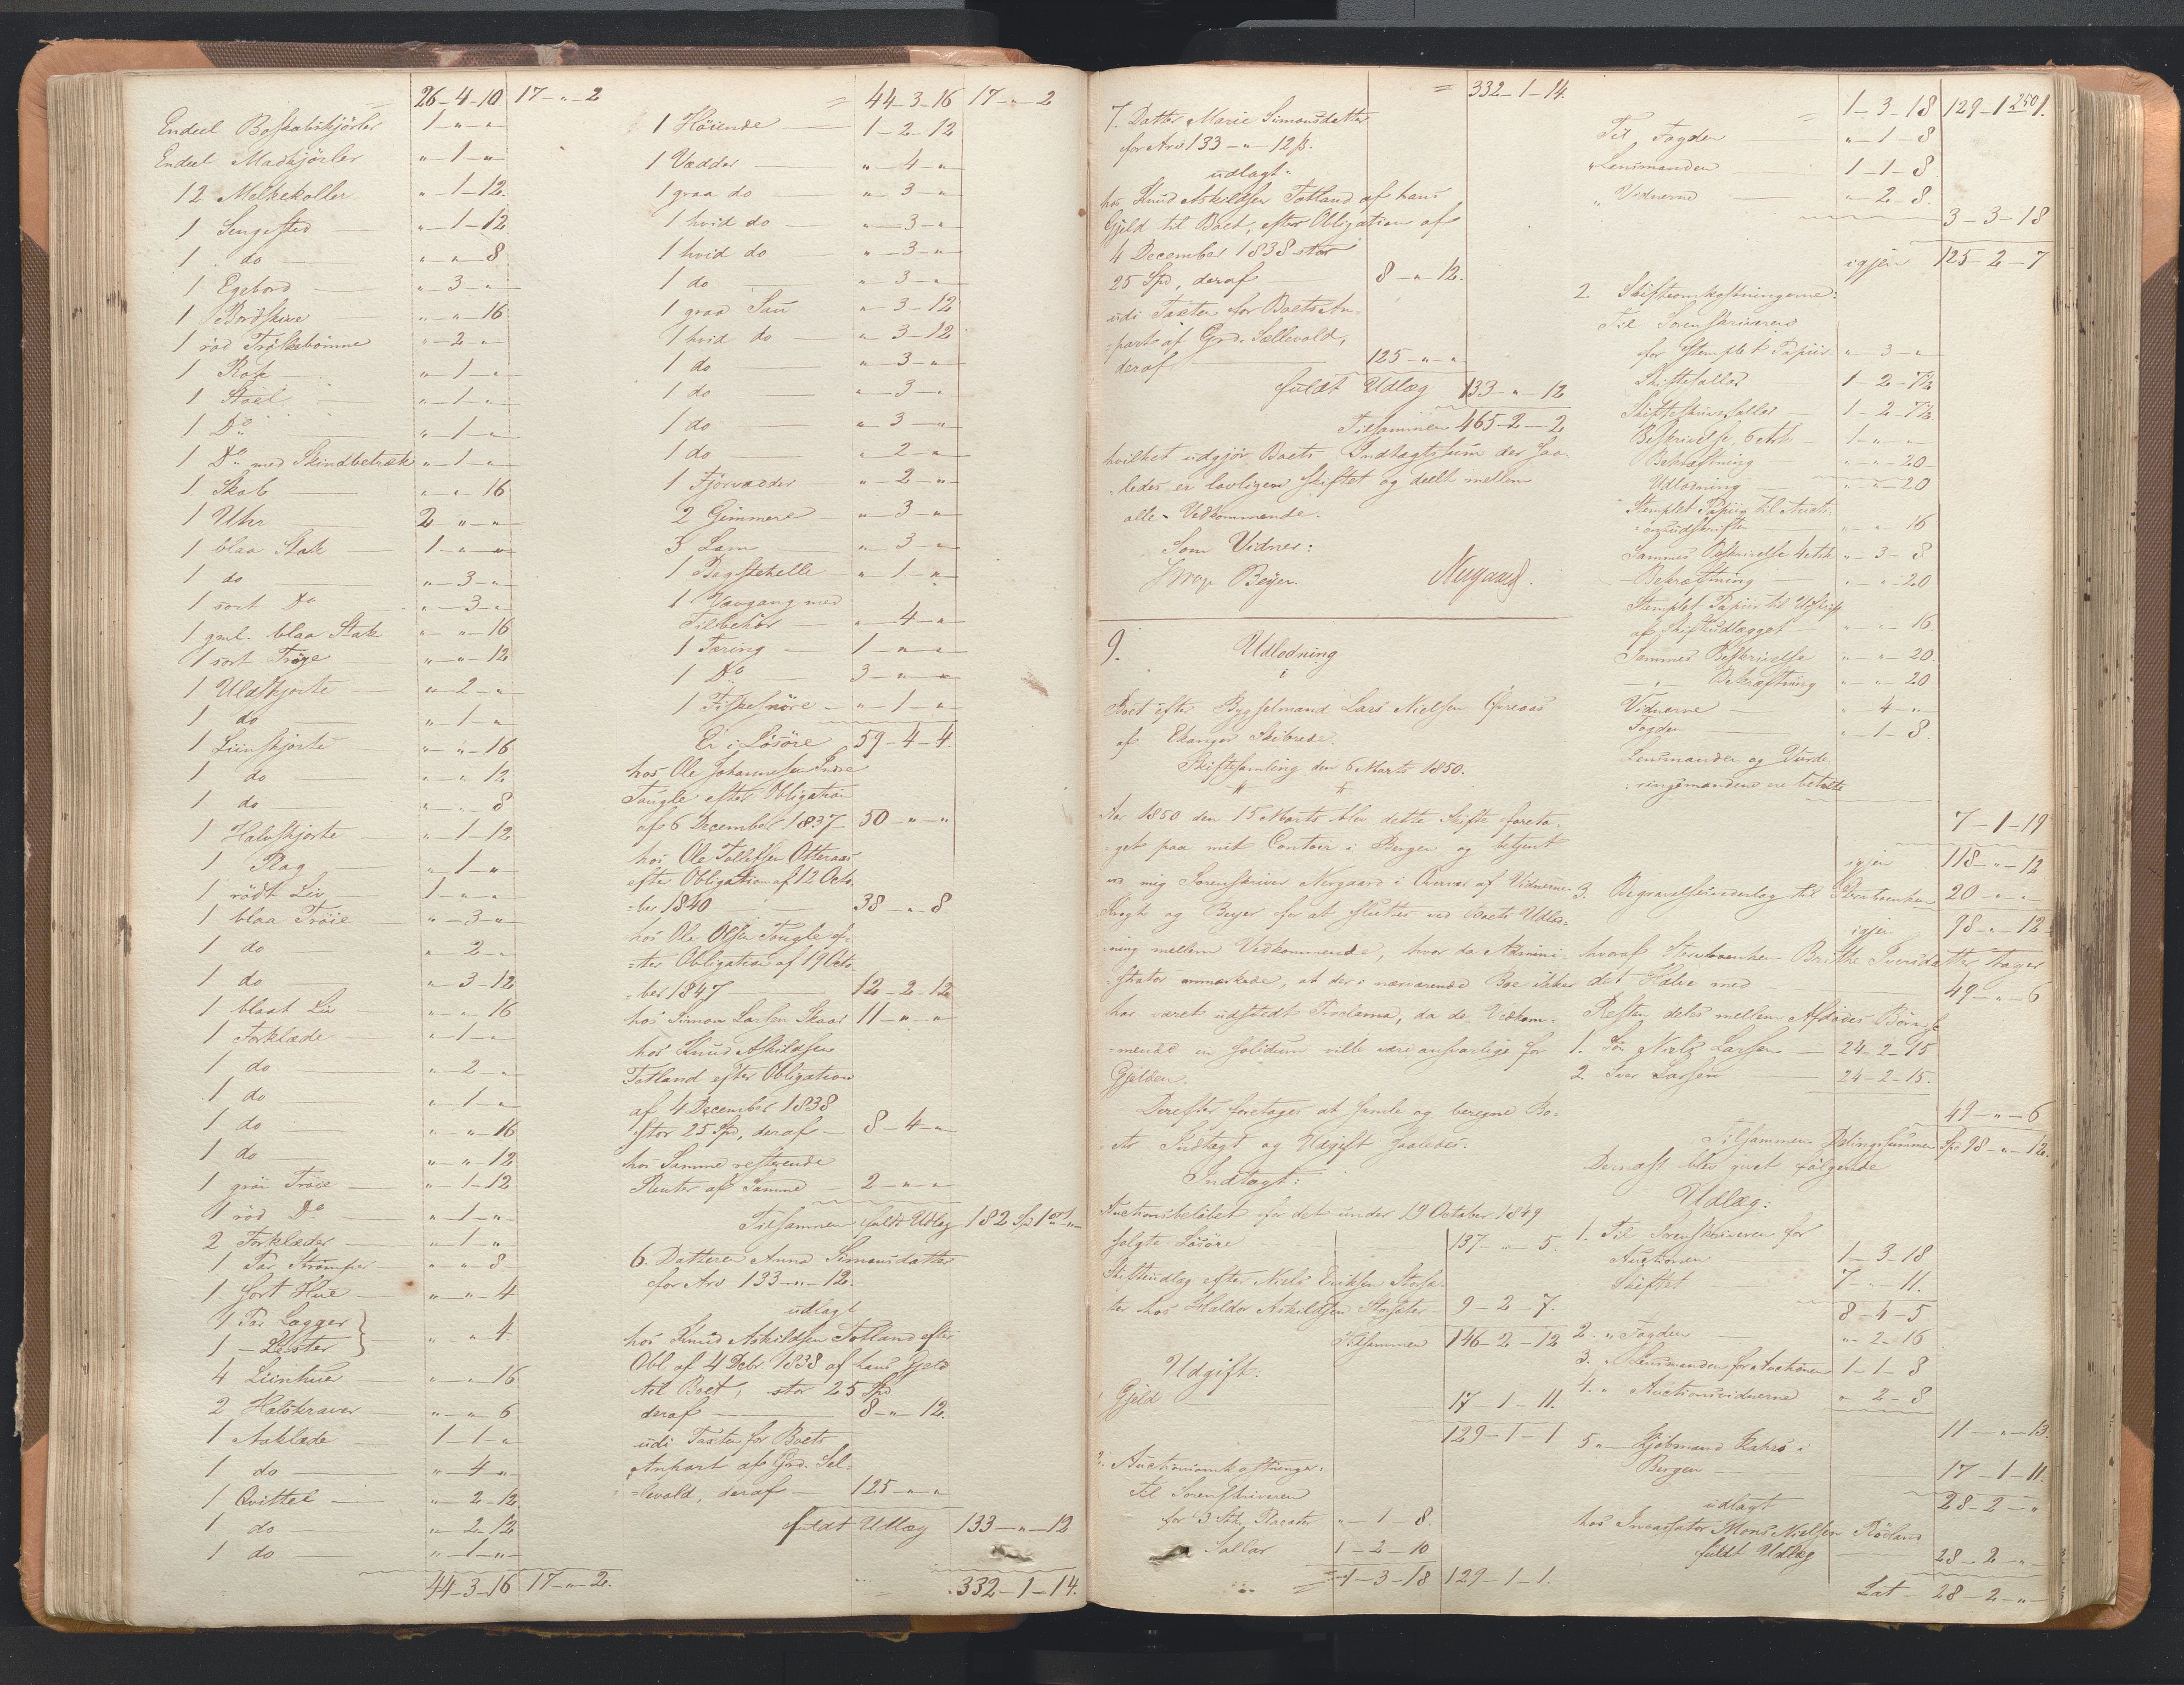 26-4-10 | 17-"-2
Endeel Boskabskjørler 1-"-"
Endeel Madkjørler "-1-"
12 Melkekoller "-1-12
1 Sengested "-1-12
1 do "-"-8
1 Egebord "-3-"
1 Bordskive "-"-16
1 rød "-2-"
1 Rok "-1-"
1 Stoel "-1-"
1 Do "-1-"
1 Do med Skindbetræk "-1-"
1 Skab "-"-16
1 Uhr 2-"-"
1 blaa Stak 1-"-"
1 do "-3-"
1 sort Do "-3-"
1 gml. blaa Stak "-"-16
1 sort Trøye "-"-12
1 Uldskjorte "-2-"
1 do "-1-"
1 Liinskjorte "-"-16
1 do "-"-12
1 do "-"-8
1 Halvskjorte "-1-12
1 Plag "-1-"
1 rødt Liv 1-"-"
1 blaa Trøie "-3-"
1 do "-2-"
1 do "-3-12
1 blaat Liv "-"-16
1 Forklæde "-1-"
1 do "-2-"
1 do "-1-"
1 do "-"-16
1 do "-"-12
1 grøn Trøie "-1-12
1 rød Do "-1-"
2 Forklæder "-1-"
1 Par Strømper "-"-8
1 sort Hue "-"-4
1 Par Lagger
1 - Lester "-"-4
4 Liinhuer "-"-16
2 Halskraver "-"-6
1 Aaklæde 1-1-"
1 do "-4-"
1 Qvittel "-2-12
1 do "-2-12
1 do "-1-"
44-3-16 | 17-"-2.
= 44-3-16 | 17-"-2
1 Høiende 1-2-12
1 Vædder "-4-"
1 graa do "-3-"
1 hvid do "-3-"
1 hvid do "-3-"
1 do "-3-"
1 graa Sau "-3-12
1 hvid do "-3-12
1 do "-3-"
1 do "-3-"
1 do "-3-"
1 do "-2-"
1 Fjorvædder "-2-"
2 Gimmere "-3-"
3 Lam "-3-"
1 Bagstehelle "-1-"
1 Vævgang med
Tilbehør "-4-"
1 Færing 1-"-"
1 Do 3-"-"
1 Fiskesnøre "-1-"
Er i Løsøre 59-4-4.
hos Ole Johannesen Indre
Tougle efter Obligation
af 6 December 1837 50-"-"
hos Ole Tollefsen Otteraas
efter Obligation af 12 Octo
=ber 1840 38-"-8
hos Ole Olsen Tougle ef=
=ter Obligation af 19 Octo
=ber 1847 12-2-12
hos Simon Larsen Skaar 11-"-"
hos Knud Askildsen
Totland efter Obligation
af 4 December 1838
stor 25 Spd, deraf 8-4-"
hos Samme resterende
Renter af Samme 2-"-"
Tilsammen fuldt Udlæg 182 Spd 1 ort "
6. Datteren Anna Simonsdatter
for Arv 133-"-12.
udlagt
hos Knud Askildsen Totland efter
Obl. af 4 Debr 1838 af hans Gjeld
til Boet, stor 25 Spd
deraf 8-"-12.
udi Taxten for Boets
Anpart af Grd. Sel=
=levold, deraf 125-"-"
fuldt Udlæg 133-"-12
332-1-14.
= 332-1-14.
7. Datter Marie Simonsdatter
for Arv 133-"-12 ß.
udlagt
hos Knud Askildsen Totland af hans
Gjeld til Boet, efter Obligation af
4 December 1838 stor
25 Spd, deraf 8-"-12.
udi Taxten for Boets An=
=part af Grd. Sellevold,
deraf 125-"-"
fuldt Udlæg 133-"-12
Tilsammen 465-2-2
hvilket udgjør Boets Indtægtssum der saa=
=ledes er lovligen skiftet og deelt mellem
alle Vedkommende.
Som Vidner:
Beyer. Neegaard.
9. Udlodning
i
Boet efter Bygselmand Lars Nielsen Øvreaas
af Ekanger Skibrede.
Skiftesamling den 6 Marts 1850.
Aar 1850 den 15 Marts blev dette Skifte foreta=
=get paa mit Contoir i Bergen og betjent
ved mig Sorenskriver Neegaard i Overvær af Vidnerne
Krogh og Beyer for at sluttes ved Boets Udlod=
=ning mellem Vedkommende, hvor da Admini=
=strator anmærkede, at der i nærværende Boe ikke
har været udstedt Proclama, da de Vedkom=
=mende in solidum ville være ansvarlige for
Gjelden.
Derefter foretages at samle og beregne Bo=
=ets Indtægt og Udgift saaledes:
Indtægt:
Auctionsbeløbet for det under 19 October 1849
solgte Løsøre 137-"-5.
Skifteudlæg efter Niels Eriksen Storsæ=
=ter hos Haldor Askildsen Storsæter 9-2-7.
Tilsammen 146-2-12
Udgift:
1. Gjeld 17-1-11.
129-1-1
2. Auctionsomkostninger:
til Sorenskriveren
for 3 Stk. Placater "-1-8.
Sallar 1-2-10
= 1-3-18 | 129-1-1.
250
= 1-3-18 | 129-1-1.
Til Fogden "-1-8
" Lensmanden 1-1-8
" Vidnerne "-2-8.
3-3-18
igjen 125-2-7
2. Skifteomkostningerne:
Til Sorenskriveren
for stemplet Papiir "-3-"
Skiftesallar 1-2-7½
Skifteskriversallar 1-2-7½
Beskrivelse, 6 Ark 1-"-"
Bekræftning "-"-20
Udlosning "-"-20
Stemplet Papiir til Aucti=
=onsudskriften "-"-16
Sammes Beskrivelse 4 Ark "-3-8
- Bekræftning "-"-20
Stemplet Papiir til Udskrift
af Skifteudlægget "-"-16
Sammes Beskrivelse "-"-20.
-"- Bekræftning "-"-20
Vidnerne "-4-"
Fogden "-1-8.
Lensmanden og Vurde=
=ringsmændene ere betalte
7-1-19
igjen 118-"-12
3. Begravelsesvederlag til Sterboenken 20-"-"
igjen 98-"-12
hvoraf Sterboenken Britthe Iversdatter tager
det Halve med 49-"-6
Resten deles mellem Afdødes Børn:
1. Søn Niels Larsen 24-2-15
2. Iver Larsen 24-2-15.
49-"-6
Tilsammen Delingssummen Spd 98-"-12.
Dernæst blev givet følgende
Udlæg:
1. Til Sorenskriveren for
Auctionen 1-3-18
Skiftet 7-"-11.
8-4-5
2. " Fogden "-2-16
3. " Lensmanden for Auctionen 1-1-8
4. " Auctionsvidnerne "-2-8
11-"-13.
5 " Kjøbmand Rahrs i
Bergen 17-1-11.
28-2-"
udlagt
hos Incassator Mons Nielsen Røland
fuldt Udlæg 28-2-"
Lat 28-2-"